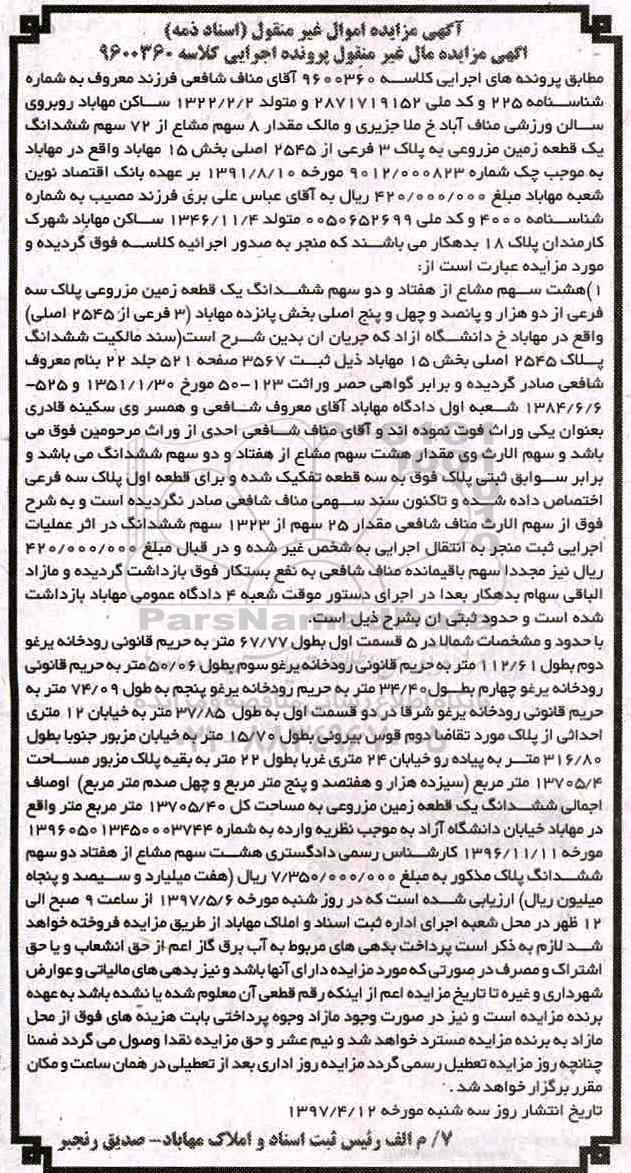 آگهی مزایده اموال غیر منقول (اسناد ذمه)
اگهی مزایده مال غیر منقول پرونده اجرایی کلاسه ۹۶۰۰۳۶۰
مطابق پرونده های اجرایی کلاسه ۹۶۰۰۳۶۰ آقای مناف شافعی فرزند معروف به شماره
شناسنامه ۲۲۵ و کد ملی ۲۸۷۱۷۱۹۱۵۲ و متولد ۱۳۲۲/۲/۲ ساکن مهاباد روبروی
سالن ورزشی مناف آباد خ ملا جزیری و مالک مقدار ۸ سهم مشاع از ۷۲ سهم ششدانگ
یک قطعه زمین مزروعی به پلاک ۳ فرعی از ۲۵۴۵ اصلی بخش ۱۵ مهاباد واقع در مهاباد
به موجب چک شماره ۹۰۱۲/۰۰۰۸۲۳ مورخه ۱۳۹۱/۸/۱۰ بر عهده بانک اقتصاد نوین
شعبه مهاباد مبلغ ۴۲۰/۰۰۰/۰۰۰ ریال به آقای عباس علی بری فرزند مصیب به شماره
شناسنامه ۴۰۰۰ و کد ملی ۰۰۵۰۶۵۲۶۹۹ متولد ۱۳۴۶/۱۱/۴ ساکن مهاباد شهرک
کارمندان پلاک ۱۸ بدهکار می باشند که منجر به صدور اجرائیه کلاسه فوق گردیده و
مورد مزایده عبارت است از:
۱)هشت سهم مشاع از هفتاد و دو سهم ششدانگ یک قطعه زمین مزروعی پلاک سه
فرعی از دو هزار و پانصد و چهل و پنج اصلی بخش پانزده مهاباد (۳ فرعی از ۲۵۴۵ اصلی)
واقع در مهاباد خ دانشگاه ازاد که جریان ان بدین شرح است(سند مالکیت ششدانگ
پلاک ۲۵۴۵ اصلی بخش ۱۵ مهاباد ذیل ثبت ۳۵۶۷ صفحه ۵۲۱ جلد ۲۲ بنام معروف
شافعی صادر گردیده و برابر گواهی حصر وراثت ۱۲۳-۵۰ مورخ ۱۳۵۱/۱/۳۰ و ۵۲۵-
۱۳۸۴/۶/۶ شعبه اول دادگاه مهاباد آقای معروف شافعی و همسر وی سکینه قادری
بعنوان یکی وراث فوت نموده اند و آقای مناف شافعی احدی از وراث مرحومین فوق می
باشد و سهم الارث وی مقدار هشت سهم مشاع از هفتاد و دو سهم ششدانگ می باشد و
برابر سوابق ثبتی پلاک فوق به سه قطعه تفکیک شده و برای قطعه اول پلاک سه فرعی
اختصاص داده شده و تاکنون سند سهمی مناف شافعی صادر نگردیده است و به شرح
فوق از سهم الارث مناف شافعی مقدار ۲۵ سهم از ۱۳۲۳ سهم ششدانگ در اثر عملیات
اجرایی ثبت منجر به انتقال اجرایی به شخص غیر شده و در قبال مبلغ ۴۲۰/۰۰۰/۰۰۰
ریال نیز مجددا سهم باقیمانده مناف شافعی به نفع بستکار فوق بازداشت گردیده و مازاد
الباقی سهام بدهکار بعدا در اجرای دستور موقت شعبه ۴ دادگاه عمومی مهاباد بازداشت
شده است و حدود ثبتی ان بشرح ذیل است.
با حدود و مشخصات شمالا در ۵ قسمت اول بطول ۶۷/۷۷ متر به حریم قانونی رودخانه یرغو
دوم بطول ۱۱۲/۶۱ متر به حریم قانونی رودخانه یرغو سوم بطول ۵۰/۰۶ متر به حریم قانونی
رودخانه یرغو چهارم بطول ۳۴/۴۰ متر به حریم رودخانه یرغو پنجم به طول ۷۴/۰۹ متر به
حریم قانونی رودخانه یرغو شرقا در دو قسمت اول به طول ۳۷/۸۵ متر به خیابان ۱۲ متری
احداثی از پلاک مورد تقاضا دوم قوس بیرونی بطول ۱۵/۷۰ متر به خیابان مزبور جنوبا بطول
۳۱۶/۸۰ متر به پیاده رو خیابان ۲۴ متری غربا بطول ۲۲ متر به بقیه پلاک مزبور مساحت
۱۳۷۰۵/۴ متر مربع (سیزده هزار و هفتصد و پنج متر مربع و چهل صدم متر مربع) اوصاف
اجمالی ششدانگ یک قطعه زمین مزروعی به مساحت کل ۱۳۷۰۵/۴۰ متر مربع متر واقع
در مهاباد خیابان دانشگاه آزاد به موجب نظریه وارده به شماره ۱۳۹۶۰۵۰۱۳۴۵۰۰۰۳۷۴۴
مورخه ۱۳۹۶/۱۱/۱۱ کارشناس رسمی دادگستری هشت سهم مشاع از هفتاد دو سهم
ششدانگ پلاک مذکور به مبلغ ۷/۳۵۰/۰۰۰/۰۰۰ ریال (هفت میلیارد و سیصد و پنجاه
میلیون ریال) ارزیابی شده است که در روز شنبه مورخه ۱۳۹۷/۵/۶ از ساعت ۹ صبح الی
۱۲ ظهر در محل شعبه اجرای اداره ثبت اسناد و املاک مهاباد از طریق مزایده فروخته خواهد
شد لازم به ذکر است پرداخت بدهی های مربوط به آب برق گاز اعم از حق انشعاب و یا حق
اشتراک و مصرف در صورتی که مورد مزایده دارای آنها باشد و نیز بدهی های مالیاتی و عوارض
شهرداری و غیره تا تاریخ مزایده اعم از اینکه رقم قطعی آن معلوم شده یا نشده باشد به عهده
برنده مزایده است و نیز در صورت وجود مازاد وجوه پرداختی بابت هزینه های فوق از محل
مازاد به برنده مزایده مسترد خواهد شد و نیم عشر و حق مزایده نقدا وصول می گردد ضمنا
چنانچه روز مزایده تعطیل رسمی گردد مزایده روز اداری بعد از تعطیلی در همان ساعت و مکان
مقرر برگزار خواهد شد .
تاریخ انتشار روز سه شنبه مورخه ۱۳۹۷/۴/۱۲
۷/ م الف رئیس ثبت اسناد و املاک مهاباد- صدیق رنجبر
ParsNamadData